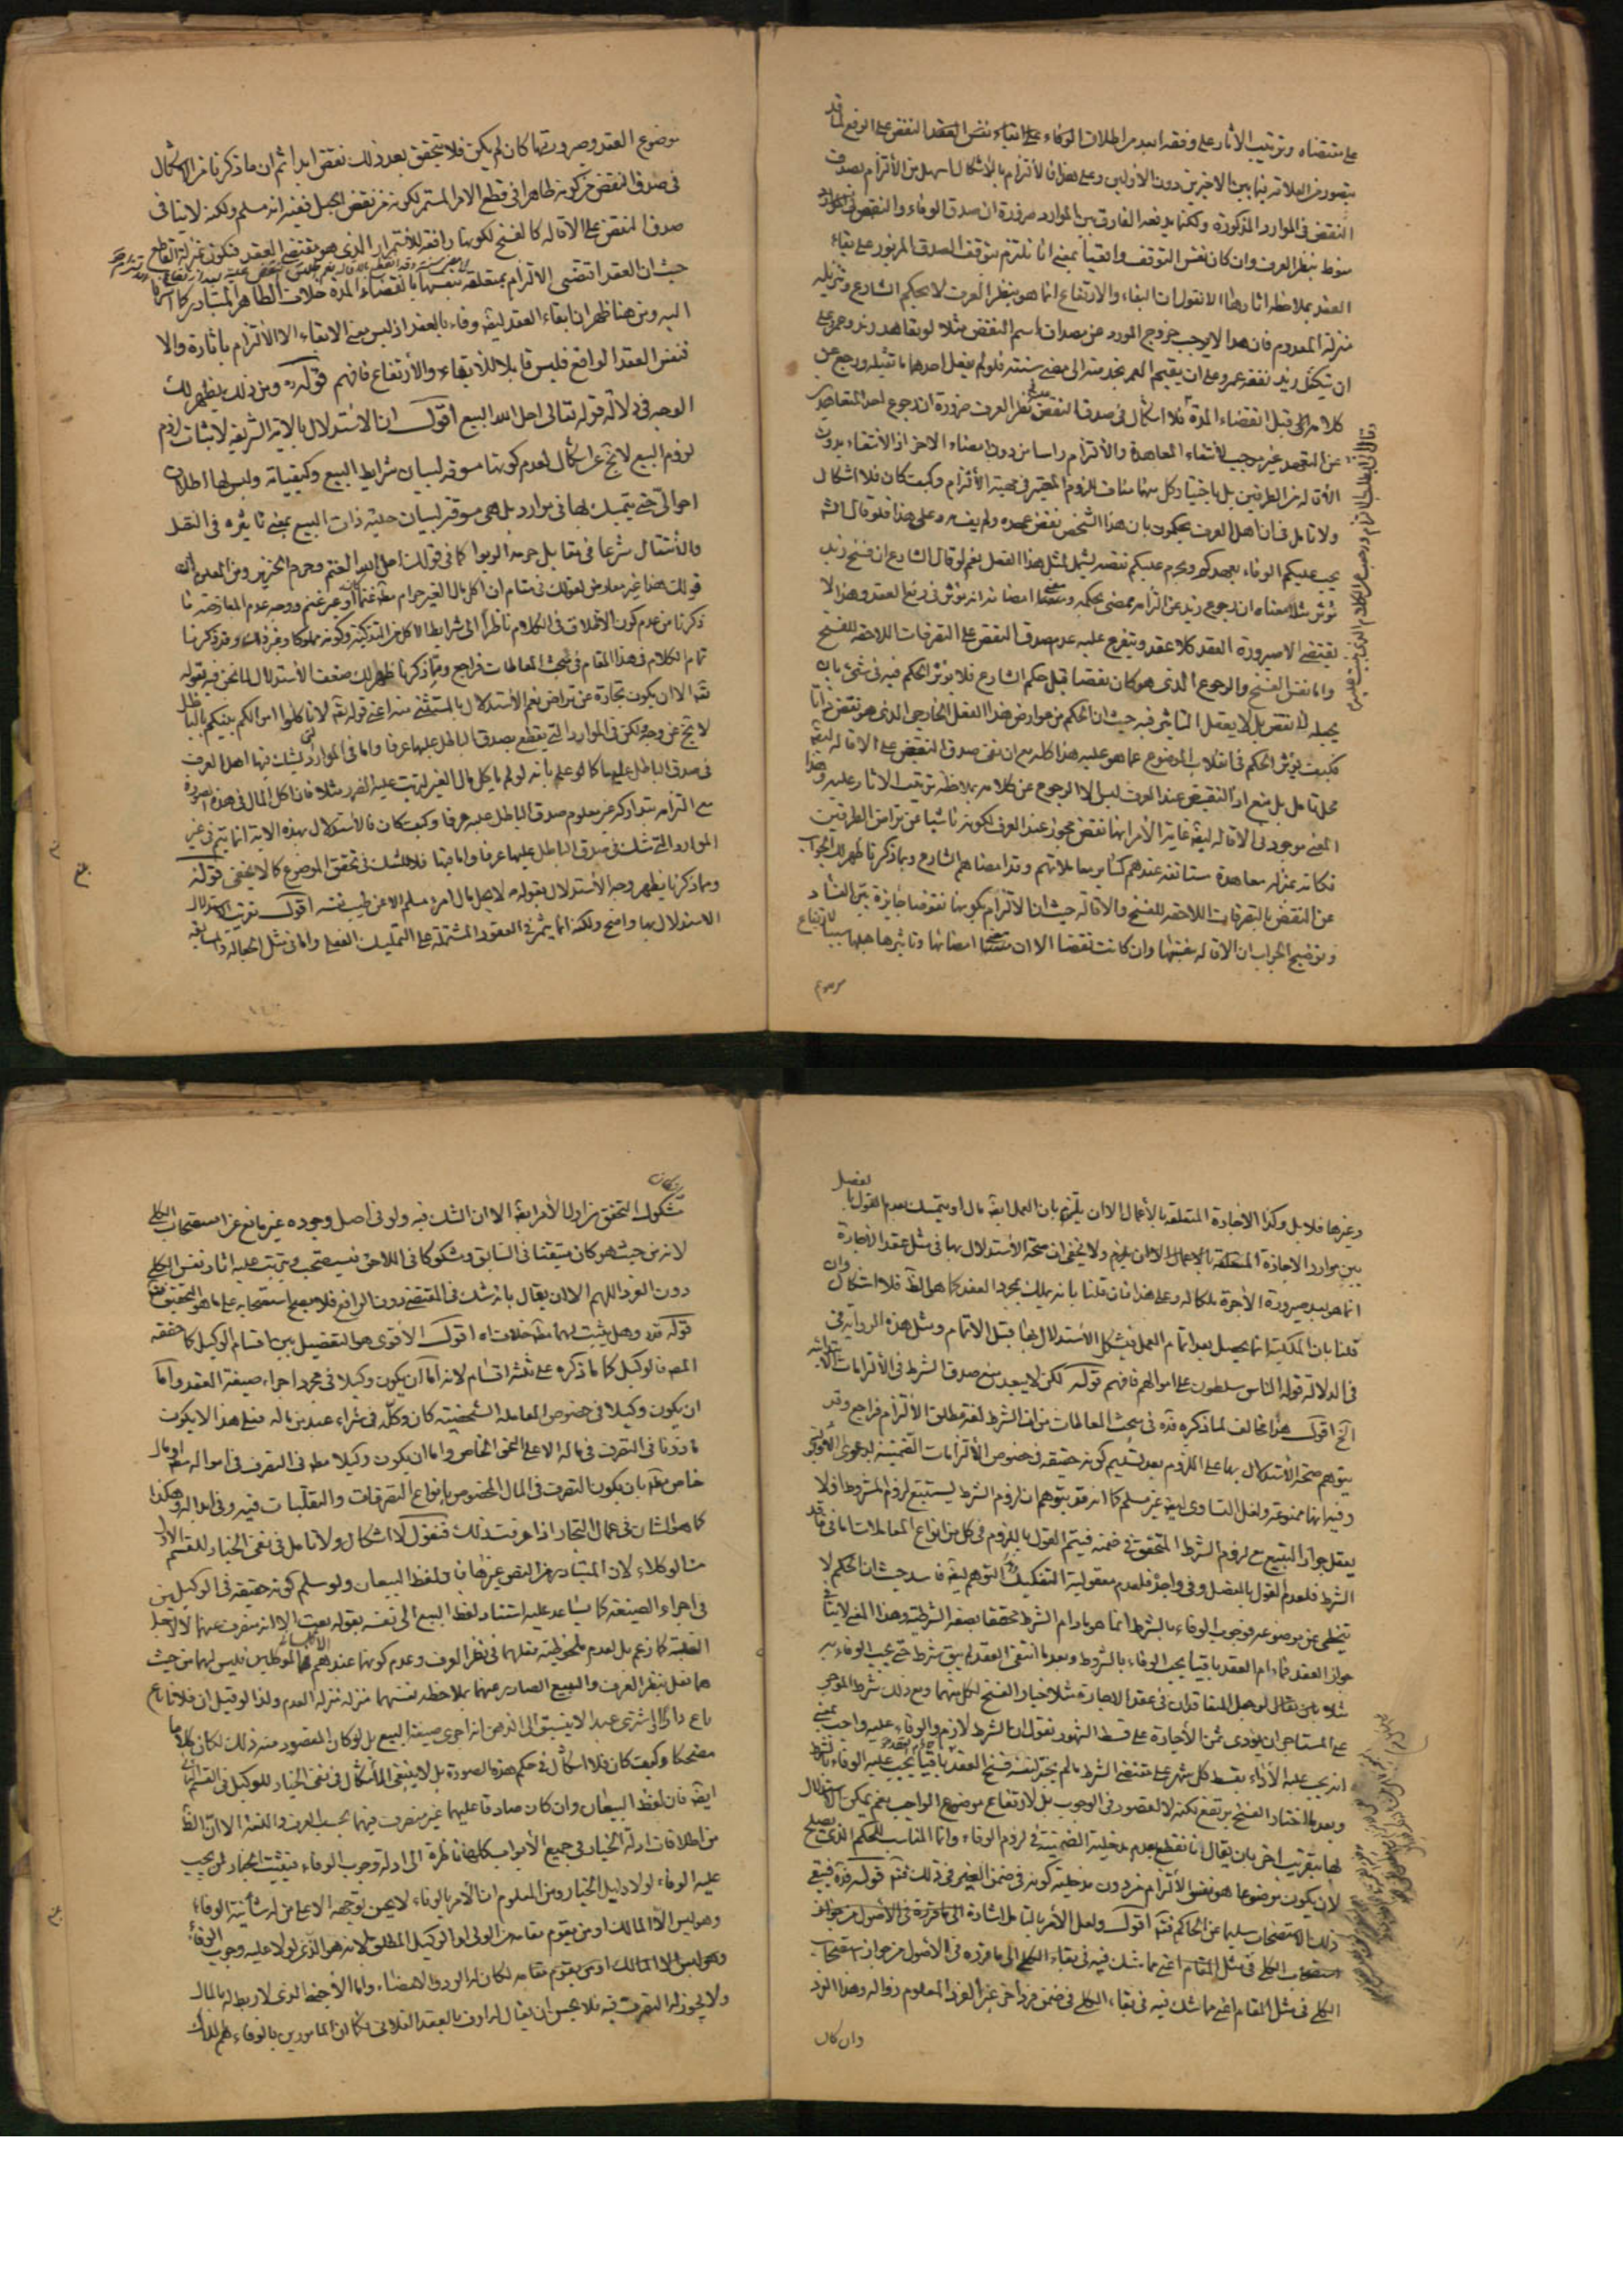 على مقتضاه وترتيب الآثار على وفقه ابعد من اطلاق الوفاء على ابقاء نفس العقد النقض على الرفع لما قد
يتصور من العلاقة فيما بين الاخيرين دون الاولين وعلى
النقض فى الموارد المذكورة ولكنها يدفعه الفارق بين الموارد ضرورة ان صدق الوفاء والنقض
منوط بنظر العرف وان كان نفس التوقف واقعيا بمعنى انا نلتزم بتوقف الصدق المزبور على بقاء
العقد بملاحظة اثاره الا انا نقول ان البقاء والارتفاع انما هو بنظر العرف لا بحكم الشارع وتنزيله
منزلة المعدوم فان هذا لا يوجب خروج المورد عن مصداق اسم النقض مثلا لو تعاهد زيد وعمرو على
ان يتكفل زيد نفقة عمرو على ان يقيم العمرو بخدمته الى مضى سنة فلو لم يفعل احدهما ما تقبله ورجع عن
كلامه قبل انقضاء المدة فلا اشكال فى صدق النقض بنظر العرف ضرورة ان رجوع احد المتعاهدين
عن التعهد غير موجب لانتفاء المعاهدة والالتزام راسا من دون امضاء الاخر اذ الانتفاء بدون
الاقالة من الطرفين بل باختيار كل منهما مناف للزوم المعتبر فى مهية الالتزام وكيف كان فلا اشكال
ولا تامل فى ان اهل العرف يحكمون بان هذا الشخص نقض عهده ولم يف به وعلى هذا فلو قال الشارع
يجب عليكم الوفاء بعهدكم ويحرم عليكم نقضه ليشمل مثل هذا الفعل نعم لو قال الشارع ان فسخ زيد
مؤثر مثلا معناه ان رجوع زيد عن التزامه ممضى بحكمه ومعنى امضائه انه مؤثر فى رفع العقد وهذا لا
يقتضى الا صيرورة العقد كلا عقد ويتفرع عليه عدم صدق النقض على التصرفات اللاحقة للفسخ
واما نفس الفسخ والرجوع الذى هو كان نقضا قبل حكم الشارع فلا يؤثر الحكم فيه فى شئ بان
يجعله لا نقض بل لا يعقل التاثير فيه حيث ان الحكم من عوارض هذا الفعل الخارجى الذى هو نقض
فكيف يؤثر الحكم فى انقلاب الموضوع عما هو عليه هذا كله مع ان نفى صدق النقض على الاقالة ايضا
محل تامل بل منع اذ النقيض عند العرف ليس الا الرجوع عن كلامه بملاحظة ترتيب الآثار عليه وهذا
المعنى موجود فى الاقالة ايضا غاية الامر انها نقض مجوز عند العرف لكونه ناشيا عن تراض الطرفين
فكانه بمنزلة معاهدة مستانفة عندهم كساير معاملاتهم وقد امضاهم الشارع وبما ذكرنا ظهر لك الجواب
عن النقض بالتصرفات اللاحقة للفسخ والاقالة حيث ان الالتزام بكونها نقوضا جايزة بين الفساد
وتوضيح الجواب ان الاقالة بنفسها وان كانت نقضا الا ان معنى امضائها وتاثيرها جعلها سببا لارتفاع
موضوع
موضوع العقد وصيرورتها كان لم يكن فلا يتحقق بعد ذلك نقض ابدا ثم ان ما ذكرنا من الاشكال
فى صدق النقض من كونه ظاهرا فى قطع الامر المستمر لكونه من نقض الحبل ففيه انه مسلم ولكنه لا ينافى
صدق النقض على الاقالة كالفسخ لكونها رافعة للاستمرار الذى هو مقتضى العقد فتكون بمنزلة القاطع
حيث ان العقد اقتضى الالتزام بمتعلقه بنفسها بانقضاء المدة خلاف الظاهر المتبادر كما اشرنا
اليه ومن هنا ظهر ان ابقاء العقد ليس وفاء بالعقد اذ ليس معنى الابقاء الا الالتزام باثاره والا
فنفس العقد الواقع فليس قابلا للابقاء والارتفاع فافهم قوله ره ومن ذلك يظهر لك
الوجه فى دلالة قوله تعالى احل الله البيع اقول ان الاستدلال بالاية الشريفة لاثبات لزوم
لزوم البيع لا يخ عن اشكال لعدم كونها مسوقة لبيان شرايط البيع وكيفياته وليس لها اطلاق
احوالى حتى يتمسك بها فى موارد بل هى مسوقة لبيان حلية ذات البيع بمعنى تاثيره فى النقل
والانتقال شرعا فى مقابل حرمة الربوا كما فى قولك احل الله الغنم وحرم الخنزير ومن المعلوم ان
قولك هذا غير معارض لقولك فى مقام ان اكل مال الغير حرام مط غنما كان او غير غنم ووجه عدم المعارضة ما
ذكرنا من عدم كون الاطلاق فى الكلام ناظرا الى شرايط الاكل من التذكية وكونه مملوكا وغير ذلك وقد ذكرنا
تمام الكلام فى هذا المقام فى مبحث المعاطات فراجع ومما ذكرنا ظهر لك ضعف الاستدلال لما نحن فيه بقوله
تعالى الا ان يكون تجارة عن تراض نعم الاستدلال بالمستثنى منه اعنى قوله تعالى لا تاكلوا اموالكم بينكم بالباطل
لا يخ عن وجه لكن فى الموارد التى يقطع بصدق الباطل عليها عرفا واما فى الموارد التى يشك فيها اهل العرف
فى صدق الباطل عليها كما لو علم بانه لو لم ياكل مال الغير لترتب عليه الضرر مثلا فان اكل المال فى هذه الصورة
مع التزامه بتداركه غير معلوم صدق الباطل عليه عرفا وكيف كان فالاستدلال بهذه الاية انما يتم فى غير
الموارد التى شك فى صدق الباطل عليها عرفا واما فيها فلا للشك فى تحقق الموضوع كما لا يخفى قوله
ومما ذكرنا يظهر وجه الاستدلال بقوله ص لا يحل مال امرء مسلم الا عن طيب نفسه اقول تقريب الاستدلال
الاستدلال بها واضح ولكنه انما يثمر فى العقود المشتملة على التمليك الفعلى واما فى مثل الجعالة والمسابقة
وغيرها فلا بل وكذا الاجارة المتعلقة بالاعمال الا ان يلتزم بان العمل ايضا مال او يتمسك بعدم القول بالفصل
بين موارد الاجارة المتعلقة بالاعمال ولا يخفى ان صحة الاستدلال بها فى مثل عقد الاجارة
انما هو بعد صيرورة الاجرة ملكا له وعلى هذا فان قلنا بانه يملك بمجرد العقد كما هو الظ فلا اشكال وان
قلنا بان الملكية انما يحصل بعد اتمام العمل فيشكل الاستدلال بها قبل الاتمام ومثل هذه الرواية فى
فى الدلالة قوله الناس مسلطون على اموالهم فافهم قوله لكن لا يبعد منع صدق الشرط فى الالتزامات الابتدائية
الخ اقول هذا مخالف لما ذكره قده فى مبحث المعاطات من ان الشرط لغة مطلق الالتزام فراجع وقد
يتوهم صحة الاستدلال بها على اللزوم بعد تسليم كونه حقيقة فى خصوص الالتزامات الضمنية بدعوى الاولوية
وفيه انها ممنوعة ولعل التساوى ايضا غير مسلم كما انه قد يتوهم ان لزوم الشرط يستتبع لزوم المشروط اذ لا
يعقل جواز المتبوع مع لزوم الشرط المتحقق فى ضمنه فيتم القول باللزوم فى كل من انواع المعاملات اما فى ما قد
الشرط فلعدم القول بالفصل وفى واحد فلعدم معقولية التفكيك التوهم ايضا فاسد حيث ان الحكم لا
يتخطى عن موضوعه فوجوب الوفاء بالشرط انما هو مادام الشرط متحققا بصفة الشرطية وهذا المعنى لا ينافى
جواز العقد فمادام العقد باقيا يجب الوفاء بالشروط وبعد ما انتفى العقد لم يبق شرط حتى يجب الوفاء به
مثلا لو جعل المتعاقدان فى عقد الاجارة مثلا خيار الفسخ لكل منهما ومع ذلك شرط الموجر
على المستاجر ان يؤدى ثمن الاجارة على قسط الشهور نقول ان الشرط لازم والوفاء عليه واجب بمعنى
انه يجب عليه الاداء بقسط كل شهر على مقتضى الشرط ما لم يختر لنفسه فسخ العقد
وبعد ما اختار الفسخ يرتفع لكنه لا لقصور فى الوجوب بل لارتفاع موضوع الواجب نعم يمكن الاستدلال
لها بتقريب اخر بان يقال انا نقطع بعدم مدخلية الضمنية فى لزوم الوفاء وانما المناسب للحكم الذى يصلح
لان يكون موضوعا هو نفس الالتزام من دون مدخلية كونه فى ضمن الغير فى ذلك فتم قوله قده فيبقى
ذلك الاستصحاب سليما عن الحاكم فتم اقول ولعل الامر بالتامل اشارة الى ما قررة فى الاصول من جواز
استصحاب الكلى فى مثل المقام اعنى مما شك فيه فى بقاء الكلى الى ما قرره فى الاصول من جواز استصحاب
الكلى فى مثل المقام اعنى مما شك فيه فى بقاء الكلى فى ضمن فرد اخر غير الفرد المعلوم زواله وهذا الفرد
وان كان
مشكوك التحقق من اول الامر ايضا الا ان الشك فيه ولو فى اصل وجوده غير مانع عن استصحاب الكلى
لانه من حيث هو كان متيقنا فى السابق ومشكوكا فى اللاحق فيستصحب ويترتب عليه اثار نفس الكلى
دون الفرد اللهم الا ان يقال بانه شك فى المقتضى دون الرافع فلا يصح استصحابه على ما هو التحقيق
قوله قده وهل يثبت لهما مط خلاف اه اقول الاقوى هو التفصيل بين اقسام الوكيل كما حققه
المصـ فالوكيل كما ذكره على ثلثة اقسام لانه اما ان يكون وكيلا فى مجرد اجراء صيغة العقد واما
ان يكون وكيلا فى خصوص المعاملة الشخصية كان وكله فى شراء عبد من ماله فعلى هذا لا يكون
ماذونا فى التصرف فى ماله الا على النحو الخاص واما ان يكون وكيلا مط فى التصرف فى امواله مط او مال
خاص منه بان يكون التصرف فى المال المخصوص بانواع التصرفات والتقلبات فيه وفى ابداله وهكذا
كما هو الشان فى عمال التجار اذا عرفت ذلك فنقول لا اشكال ولا تامل فى نفى الخيار للقسم الاول
من الوكلاء لان المتبادر من النص غيرها فى لفظ البيعان ولو سلم كونه حقيقة فى الوكيلين
فى اجراء الصيغة كما يساعد عليه استناد لفظ البيع الى نفسه بقوله بعت الا انه منصرف عنهما لا لاجل
الغلبة كما زعم بل لعدم ملحوظية فعلهما فى نظر العرف وعدم كونها عندهم الا كالموكلين فليس لهما من حيث
هما فعل بنظر العرف والبيع الصادر عنهما بملاحظة نفسهما منزل منزلة العدم ولذا لو قيل ان فلانا باع
باع داره او اشترى عبدا لا ينسبق الى الذهن انه اجرى صيغة البيع بل لو كان المقصود منه ذلك لكان كلاما
مضحكا وكيف كان فلا اشكال فى حكم هذه الصورة بل لا ينبغى الاشكال فى نفى الخيار للوكيل فى القسم الثانى
ايضا فان لفظ البيعان وان كان صادقا عليهما غير منصرف فيهما بحسب العرف واللغة الا ان الظ
من اطلاقات ادلة الخيار فى جميع الابواب كلها ناظرة الى ادلة وجوب الوفاء فيثبت الخيار لمن يجب
عليه الوفاء لولا دليل الخيار ومن المعلوم ان الامر بالوفاء لا يحسن توجيهه الا على من له شأنية الوفاء
وهو ليس الا المالك او من يقوم مقامه من الولى او الوكيل المطلق لانه هو الذى لولا عليه وجوب الوفاء
وهو ليس الا المالك او من يقوم مقامه لكان له الرد والامضاء واما الاجنبى الذى لا ربط له بالمال
ولا يجوز له التصرف فيه فلا يحسن ان يقال له اوف بالعقد الفلانى